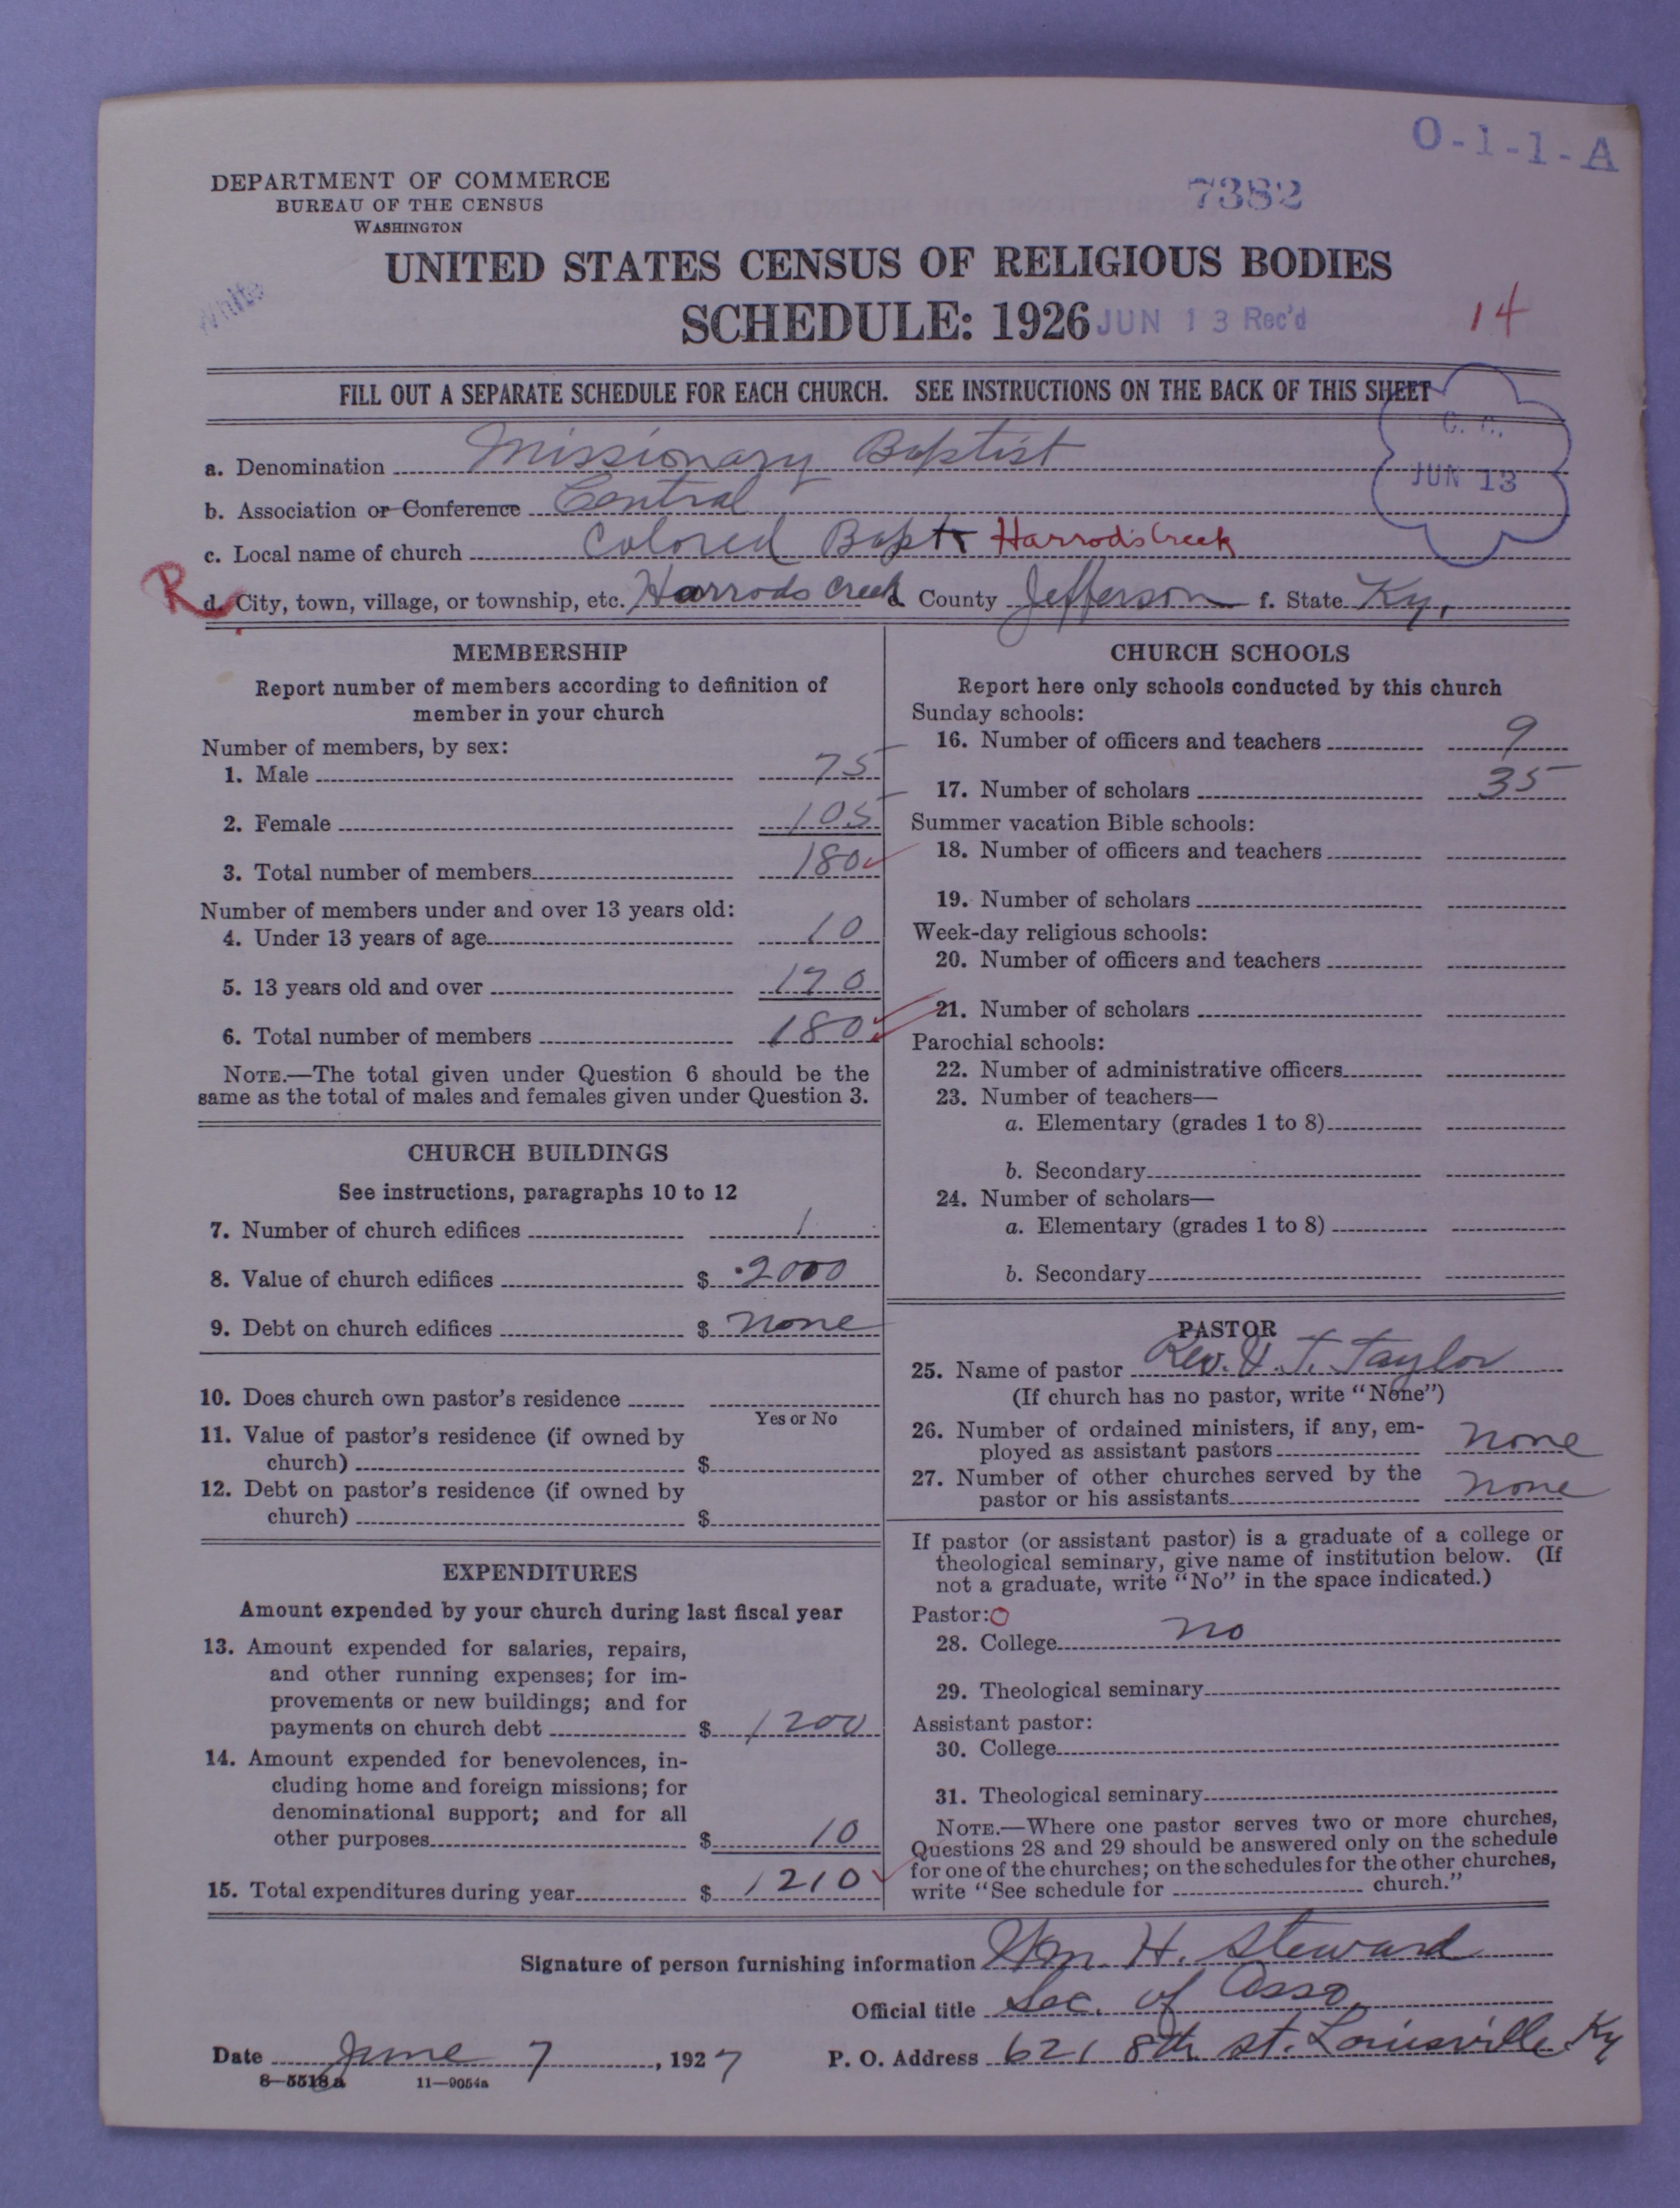 O-1-1-A
DEPARTMENT OF COMMERCE
BUREAU OF THE CENSUS
WASHINGTON
7382
UNITED STATES CENSUS OF RELIGIOUS BODIES
White
SCHEDULE: 1926 JUN 13 Rec'd 14
FILL OUT A SEPARATE SCHEDULE FOR EACH CHURCH. SEE INSTRUCTIONS ON THE BACK OF THIS SHEET
JUN 13
a. Denomination Missionary Baptist
b. Association or Conference Central
c. Local name of church Colored Bapt Harrods Creek
R d. City, town, village, or township, etc. Harrods Creek County Jefferson f. State Ky.
MEMBERSHIP
Report number of members according to definition of
member in your church
Number of members, by sex:
1. Male 75
2. Female 105
3. Total number of members 180
Number of members under and over 13 years old:
4. Under 13 years of age 10
5. 13 years old and over 170
6. Total number of members 180
NOTE.—The total given under Question 6 should be the
same as the total of males and females given under Question 3.
CHURCH BUILDINGS
See instructions, paragraphs 10 to 12
7. Number of church edifices 1
8. Value of church edifices $ 2000
9. Debt on church edifices $ none
10. Does church own pastor's residence
Yes or No
11. Value of pastor's residence (if owned by
church) $
12. Debt on pastor's residence (if owned by
church) $
EXPENDITURES
Amount expended by your church during last fiscal year
13. Amount expended for salaries, repairs,
and other running expenses; for im-
provements or new buildings; and for
payments on church debt $ 1200
14. Amount expended for benevolences, in-
cluding home and foreign missions; for
denominational support; and for all
other purposes $ 10
15. Total expenditures during year $ 1210
CHURCH SCHOOLS
Report here only schools conducted by this church
Sunday schools:
16. Number of officers and teachers 9
17. Number of scholars 35
Summer vacation Bible schools:
18. Number of officers and teachers
19. Number of scholars
Week-day religious schools:
20. Number of officers and teachers
21. Number of scholars
Parochial schools:
22. Number of administrative officers
23. Number of teachers—
a. Elementary (grades 1 to 8)
b. Secondary
24. Number of scholars—
a. Elementary (grades 1 to 8)
b. Secondary
PASTOR
25. Name of pastor Rev. T. Taylor
(If church has no pastor, write "None")
26. Number of ordained ministers, if any, em-
ployed as assistant pastors none
27. Number of other churches served by the
pastor or his assistants none
If pastor (or assistant pastor) is a graduate of a college or
theological seminary, give name of institution below. (If
not a graduate, write "No" in the space indicated.)
Pastor:
28. College no
29. Theological seminary
Assistant pastor:
30. College
31. Theological seminary
NOTE.—Where one pastor serves two or more churches,
Questions 28 and 29 should be answered only on the schedule
for one of the churches; on the schedules for the other churches,
write "See schedule for church."
Signature of person furnishing information Wm. H. Steward
Official title Sec. of Asso.
Date June 7, 1927 P. O. Address 621 8th st. Louisville Ky
8-5518a 11-9054a